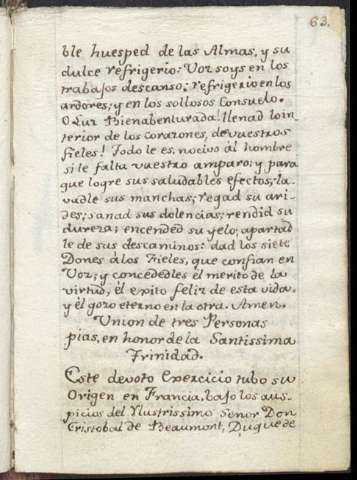 63.
ble huesped de las Almas, y su
dulce refrigerio: Voz soys en los
trabajos descanso: refrigerio en los
ardores; y en los sollosos Consuelo.
O Luz Bienabenturada! llenad lo in-
terior de los corazones, de vuestros
fieles! Todo le es, nocivo al hombre
si le falta vuestro amparo; y para
que logre sus saludables efectos, la-
vadle sus manchas; regad su ari-
des; sanad sus dolencias; rendid su
dureza; encended su yelo; apartad
le de sus descaminos: dad los siete
Dones à los Fieles, que confian en
Voz; y concededles el merito de la
virtud, el exito feliz de esta vida,
y el gozo eterno en la otra. Amen.
Union de tres Personas
pias, en honor de la Santissima
Trinidad.
Este devoto Exercicio tubo su
Origen en Francia, bajo los aus-
picios del Yllustrissimo Señor Don
Cristobal de Beaumont, Duque de